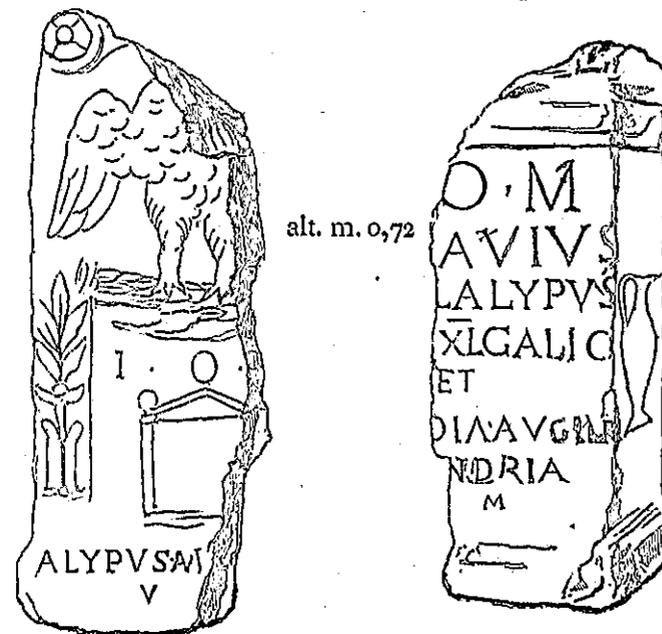 I · O ·
ALYPVS·M
V
alt. m. 0,72
O · M
AVIVS
LALYPVS
X̅L̅GALIC
ET
DIA·AVGLIB
NDRIA
M